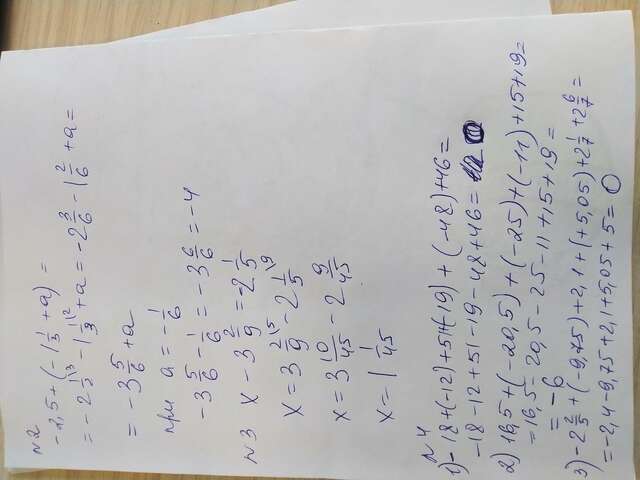 N2
-2,5+(-1 1/3+a)=
=-2 1/2 \3 -1 1/3 \2 +a=-2 3/6-1 2/6+a=
=-3 5/6+a
при a=-1/6
-3 5/6-1/6=-3 6/6=-4
N3 x-3 2/9=-2 1/5
x=3 2/9 \5 -2 1/5 \9
x=3 10/45-2 9/45
x=1 1/45
N4
1)-18+(-12)+51+(-19)+(-48)+46=
-18-12+51-19-48+46=
2) 16,5+(-20,5)+(-25)+(-11)+15+19=
=16,5-20,5-25-11+15+19=
=-6
3)-2 2/5+(-9,75)+2,1+(+5,05)+2 1/7+2 6/7=
=-2,4-9,75+2,1+5,05+5=0